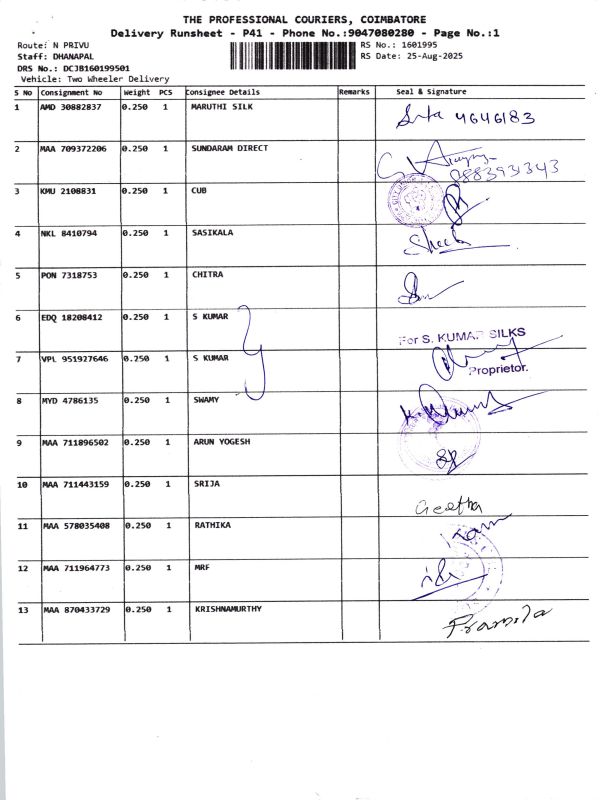 THE PROFESSIONAL COURIERS, COIMBATORE
Delivery Runsheet - P41 - Phone No.:9047080280 - Page No.:1
Route: N PRIVU RS No.: 1601995
Staff: DHANAPAL RS Date: 25-Aug-2025
DRS No.: DCJB160199501
Vehicle: Two Wheeler Delivery
S No Consignment No Weight PCS Consignee Details Remarks Seal & Signature
1 AMD 30882837 0.250 1 MARUTHI SILK 4646183
2 MAA 709372206 0.250 1 SUNDARAM DIRECT
3 KMU 2108831 0.250 1 CUB
4 NKL 8410794 0.250 1 SASIKALA
5 PON 7318753 0.250 1 CHITRA
6 EDQ 18208412 0.250 1 S KUMAR For S. KUMAR SILKS
7 VPL 951927646 0.250 1 S KUMAR Proprietor.
8 MYD 4786135 0.250 1 SWAMY
9 MAA 711896502 0.250 1 ARUN YOGESH
10 MAA 711443159 0.250 1 SRIJA Geetha
11 MAA 578035408 0.250 1 RATHIKA
12 MAA 711964773 0.250 1 MRF
13 MAA 870433729 0.250 1 KRISHNAMURTHY Pramila